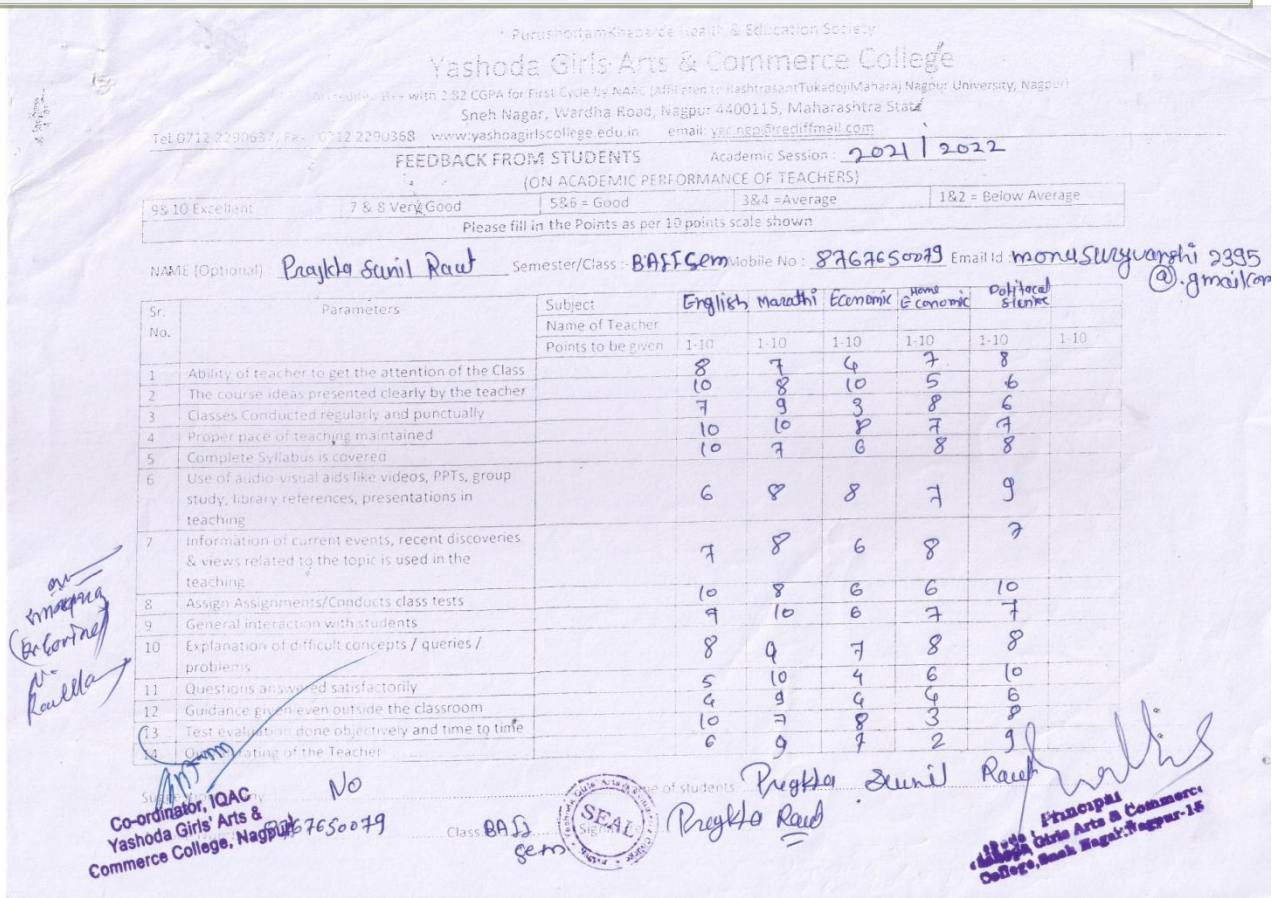 PurushottamKhaparde Health & Education Society
Yashoda Girls Arts & Commerce College
with 2.82 CGPA for First Cycle by NAAC (Affiliated to RashtrasantTukadojiMaharaj Nagpur University, Nagpur)
Sneh Nagar, Wardha Road, Nagpur 4400115, Maharashtra State
Tel.0712 2290637, Fax 0712 2290368 www:yashoagirlscollege.edu.in email: ygc.ngp@rediffmail.com
FEEDBACK FROM STUDENTS Academic Session : 2021 | 2022
(ON ACADEMIC PERFORMANCE OF TEACHERS)
9& 10 Excellent 7 & 8 Very Good 5&6 = Good 3&4 =Average 1&2 = Below Average
Please fill in the Points as per 10 points scale shown
NAME (Optional) : Sunil Raut Semester/Class :- BA II Sem Mobile No : 8767650079 Email Id : monusuryuvanshi 2395
@.gmailcom
Sr. No. Parameters Subject English Marathi Economic Home Economic Political
Name of Teacher
Points to be given 1-10 1-10 1-10 1-10 1-10 1-10
1 Ability of teacher to get the attention of the Class 8 7 4 7 8
2 The course ideas presented clearly by the teacher 10 8 10 5 6
3 Classes Conducted regularly and punctually 7 9 3 8 6
4 Proper pace of teaching maintained 10 10 8 7 7
5 Complete Syllabus is covered 10 7 6 8 8
6 Use of audio-visual aids like videos, PPTs, group
study, library references, presentations in 6 8 8 7 9
teaching
7 Information of current events, recent discoveries
& views related to the topic is used in the 7 8 6 8 7
teaching
8 Assign Assignments/Conducts class tests 10 8 6 6 10
9 General interaction with students 9 10 6 7 7
10 Explanation of difficult concepts / queries / 8 9 7 8 8
problems
11 Questions answered satisfactorily 5 10 4 6 10
12 Guidance given even outside the classroom 4 9 4 4 6
13 Test evaluation done objectively and time to time 10 7 8 3 8
14 rating of the Teacher 6 9 7 2 9
No Name of students Sunil Raut
Co-ordinator, IQAC
Yashoda Girls' Arts &
Commerce College, Nagpur
8767650079 Class BA II Sem SEAL Signature Raut
Principal
Girls Arts & Commerce
College, Sneh Nagar, Nagpur-15